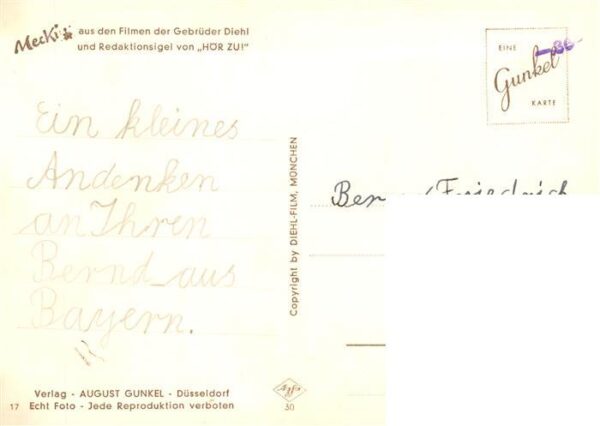 Mecki aus den Filmen der Gebrüder Diehl
und Redaktionsigel von „HÖR ZU!"
EINE
Gunkel
KARTE
Ein kleines
Andenken
an Ihren
Bernd aus
Bayern.
Copyright by DIEHL-FILM, MÜNCHEN
Verlag - AUGUST GUNKEL - Düsseldorf
17 Echt Foto - Jede Reproduktion verboten
Agfa
30